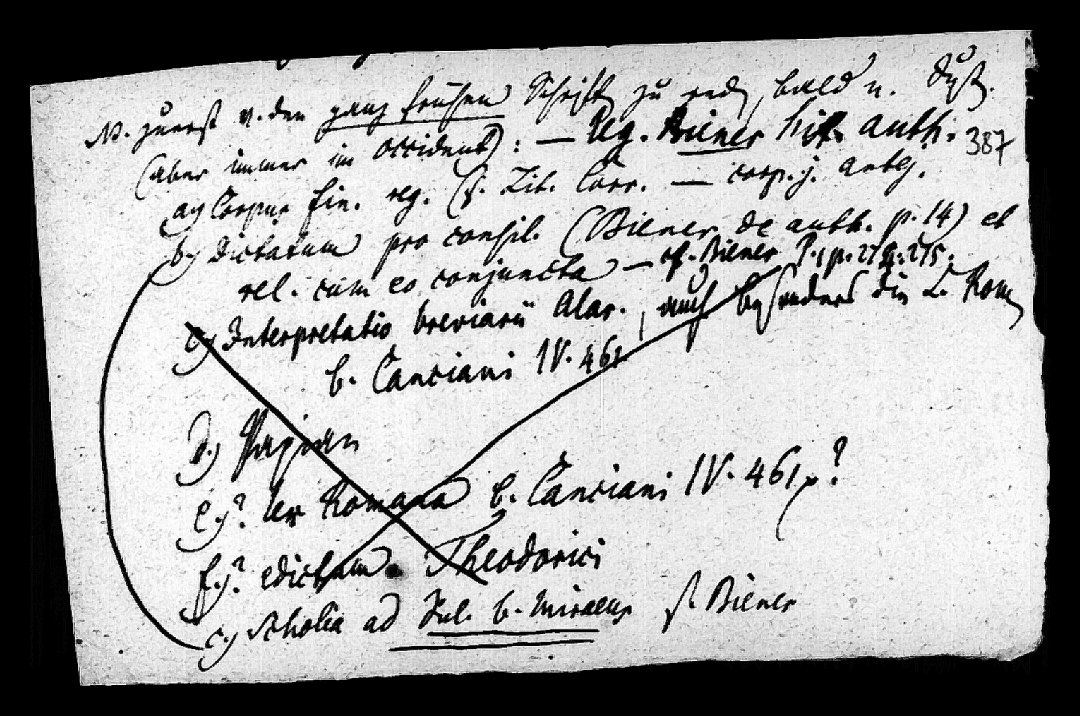 NB. zuerst v. den ganz frühen Schriften zu reden, bald n.
(aber immer im Occident): — Biener hist. auth.
387
a) Corpus fin. reg. (s. Zit. Corr. — corp. j. antej.
b) dictatum pro consil. (Biener de auth. p. 14) et
rel. cum eo conjuncta — cf. Biener P. 1 p.
c) Interpretatio breviarii Alar., auch besonders die L. Rom
b. Canciani IV. 461
d.) Papian
e.)? lex Romana b. Canciani IV. 461,?
f.)? edictum Theodorici
c.) Scholia ad Jul. b. Miraeus s. Biener